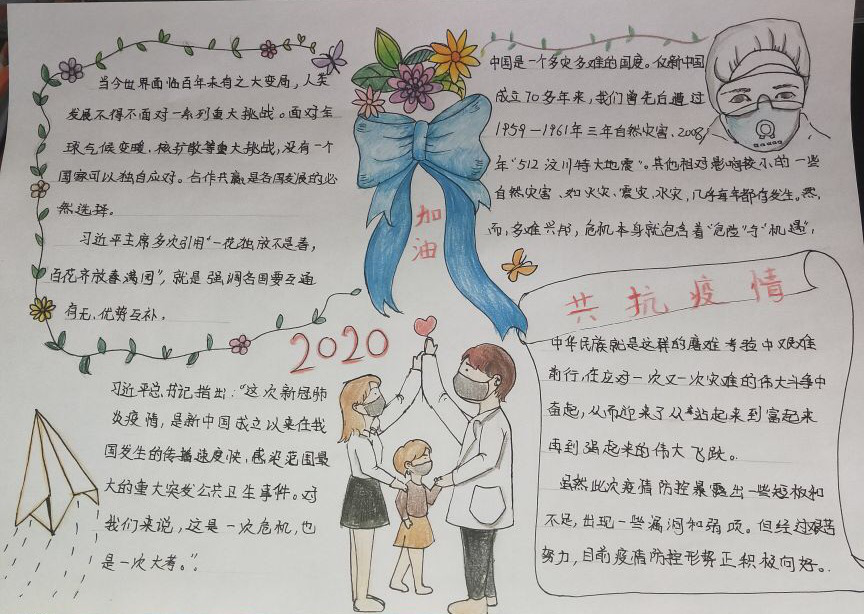 当今世界面临百年未有之大变局，人类
发展不得不面对一系列重大挑战。面对全
球气候变暖、核扩散等重大挑战，没有一个
国家可以独自应对。合作共赢是各国发展的必
然选择。
习近平主席多次引用“一花独放不是春，
百花齐放春满园”，就是强调各国要互通
有无、优势互补。
加
油
中国是一个多灾多难的国度。仅新中国
成立70多年来，我们曾先后遭过
1959—1961年三年自然灾害、2008
年“512汶川特大地震”。其他相对影响较小的一些
自然灾害、如火灾、震灾、水灾，几乎每年都有发生。然
而，多难兴邦，危机本身就包含着“危险”与“机遇”，
2020
习近平总书记指出：“这次新冠肺
炎疫情，是新中国成立以来在我
国发生的传播速度快，感染范围最
大的重大突发公共卫生事件。对
我们来说，这是一次危机，也
是一次大考。”。
共抗疫情
中华民族就是这样的磨难考验中艰难
前行，在应对一次又一次灾难的伟大斗争中
奋起，从而迎来了从站起来到富起来
再到强起来的伟大飞跃。
虽然此次疫情防控暴露出一些短板和
不足，出现一些漏洞和弱项。但经过艰苦
努力，目前疫情防控形势正积极向好。